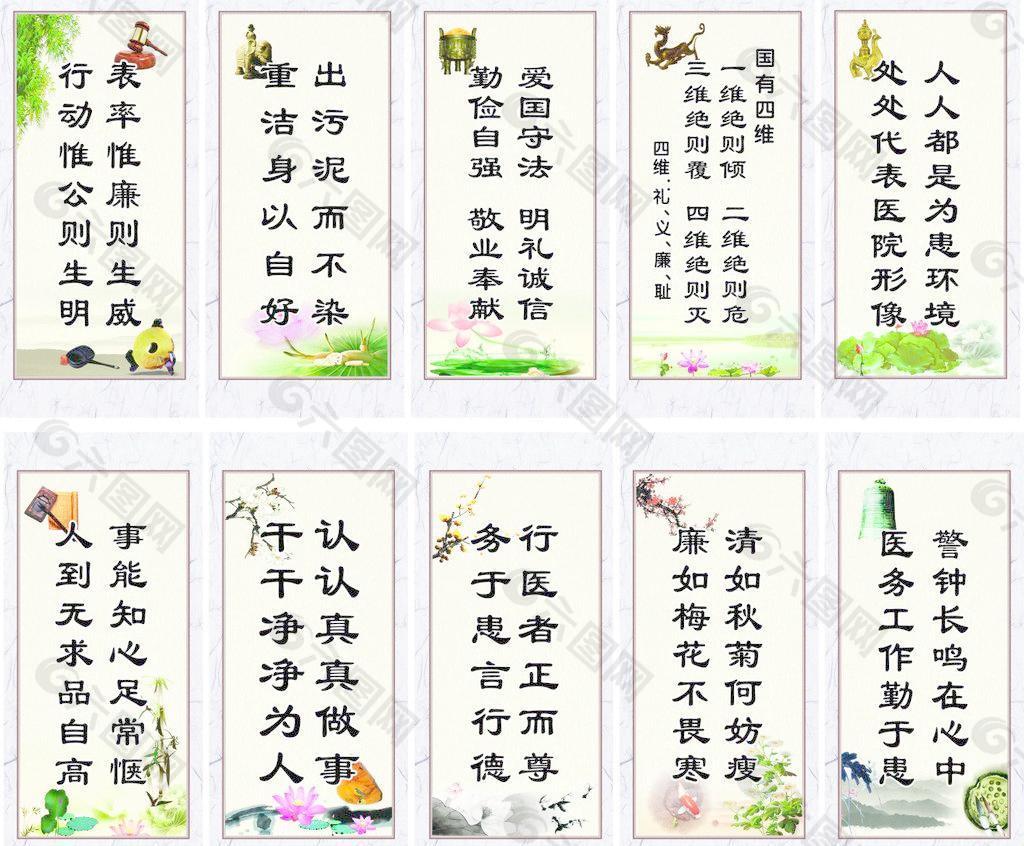 表率惟廉则生威
行动惟公则生明
出污泥而不染
重洁身以自好
爱国守法 明礼诚信
勤俭自强 敬业奉献
国有四维
一维绝则倾 二维绝则危
三维绝则覆 四维绝则灭
四维:礼、义、廉、耻
人人都是为患环境
处处代表医院形像
事能知心足常惬
人到无求品自高
认认真真做事
干干净净为人
行医者正而尊
务于患言行德
清如秋菊何妨瘦
廉如梅花不畏寒
警钟长鸣在心中
医务工作勤于患
六图网